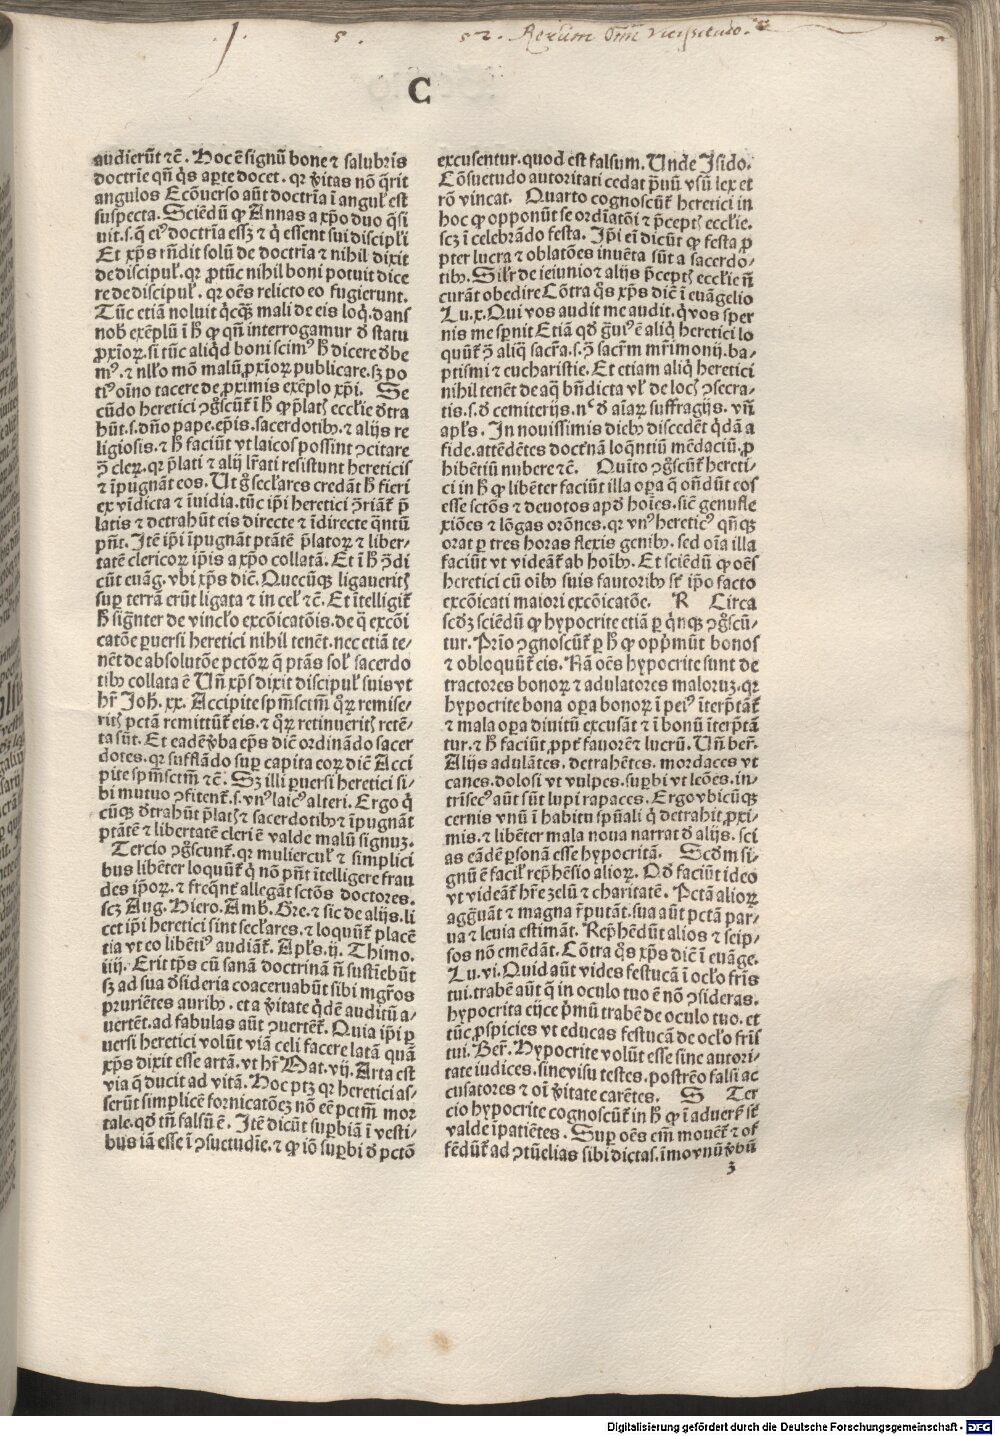 . J . 5 . 52 . Rerum
C
audierūt ⁊c̄. Hoc ē signū bone ⁊ salubris
doctrīe qn̄ q̇s aꝑte docet. qꝛ v̓itas nō q̄rit
angulos E cōuerso aūt doctrīa ī angul̓ est
suspecta. Sciēdū ꝙ Annas a xp̄o duo q̄si
uit. s. q̄ ei⁹ doctrīa essꝫ ⁊ q̇ essent sui discipl̓i
Et xp̄s rn̄dit solū de doctrīa ⁊ nihil dixit
de discipul̓. qꝛ ꝓ tūc nihil boni potuit dice
re de discipul̓. qꝛ oēs relicto eo fugierunt.
Tūc etiā noluit q̇cꝗ̄ mali de eis loq̇. dans
nob̓ exēplū ī h̓ ꝙ qn̄ interrogamur d̓ statu
ꝓxīoꝝ. si tūc aliq̇d boni scim⁹ h̓ dicere d̓be
m⁹. ⁊ nll̓o mō malū ꝓxīoꝝ publicare. sꝫ po
ti⁹ oīno tacere de ꝓximis exēplo xp̄i. Se
cūdo heretici ꝯg̓scūt̄ ī h̓ ꝙ p̄lat̄ eccl̓ie d̓tra
hūt. s. dn̄o pape. ep̄is. sacerdotibꝰ ⁊ alijs re
ligiosis. ⁊ h̓ faciūt vt laicos possint ꝯcitare
ꝯ̄ cleꝝ. qꝛ p̄lati ⁊ alij lr̄ati resistunt hereticis
⁊ īpugnāt eos. Ut g̓ secl̓ares credāt h̓ fieri
ex vīdicta ⁊ īuidia. tūc ip̄i heretici ꝯ̄riāt̄ p̄
latis ⁊ detrahūt eis directe ⁊ īdirecte q̄ntū
pn̄t. Itē ip̄i īpugnāt ptātē p̄latoꝝ ⁊ liber-
tatē clericoꝝ ip̄is a xp̄o collatā. Et ī h̓ ꝯ̄di
cūt euāg. vbi xp̄s dic̄. Quecūqꝫ ligauerit̄
suꝑ terrā erūt ligata ⁊ in cel̓ ⁊c̄. Et ītelligit̄
h̓ sign̄ter de vincl̓o excōicatōis. de q̄ excōi
catōe ꝑuersi heretici nihil tenēt. nec etiā te-
nēt de absolutōe pctōꝝ q̄ ptās sol̓ sacerdo
tibꝰ collata ē Un̄ xp̄s dixit discipul̓ suis vt
hr̄ Joh̄. xx. Accipite spm̄sctm̄ q̇ꝝ remise-
rit̄ pctā remittūt̄ eis. ⁊ q̇ꝝ retinuerit̄ retē-
ta sūt. Et eadē v̓ba ep̄s dic̄ ordināndo sacer
dotes. qꝛ sufflādo suꝑ capita eoꝝ dic̄ Acci
pite spm̄sctm̄ ⁊c̄. Sꝫ illi ꝑuersi heretici si-
bi mutuo ꝯfitent̄. s. vn⁹ laic⁹ alteri. Ergo q̇
cūqꝫ d̓trahūt p̄lat̄ ⁊ sacerdotibꝰ ⁊ īpugnāt
ptātē ⁊ libertatē cleri ē valde malū signuꝫ.
Tercio ꝯg̓scunt̄. qꝛ muliercul̓ ⁊ simplici
bus libēter loquūt̄ q̇ nō pn̄t ītelligere frau
des ip̄oꝝ. ⁊ freq̄nt̄ allegāt sctōs doctores.
scꝫ Aug. Hiero. Amb. Gre. ⁊ sic de alijs. li
cet ip̄i heretici sint secl̓ares. ⁊ loquūt̄ placē
tia vt eo libēti⁹ audiāt̄. Apl̓s. ij. Thimo.
iiij. Erit tp̄s cū sanā doctrinā n̄ sustīebūt
sꝫ ad sua d̓sideria coaceruabūt sibi mgr̄os
pruriētes auribꝰ. et a v̓itate q̇dē auditū a-
uertēt. ad fabulas aūt ꝯuertēt̄. Quia ip̄i ꝑ
uersi heretici volūt viā celi facere latā quā
xp̄s dixit esse artā. vt hr̄ Mat. vij. Arta est
via q̄ ducit ad vitā. Hoc ptꝫ qꝛ heretici as-
serūt simplicē fornicatōeꝫ nō eē pctm̄ mor
tale. qd̓ tn̄ falsū ē. Itē dicūt suꝑbiā ī vesti-
bus iā esse ī ꝯsuetudīe. ⁊ ꝙ iō suꝑbi d̓ pctō
excusentur. quod est falsum. Unde Isido.
Cōsuetudo autoritati cedat p̄uū vsū lex et
rō vincat. Quarto cognoscūt̄ heretici in
hoc ꝙ opponūt se ordīatōi ⁊ p̄cept̄ eccl̓ie.
scꝫ ī celebrādo festa. Ip̄i ei̓ dicūt ꝙ festa ꝓ
pter lucra ⁊ oblatōes inuēta sūt a sacerdo-
tibꝰ. Sil̓r de ieiunio ⁊ alijs p̄cept̄ eccl̓ie n̄
curāt obedire Cōtra q̇s xp̄s dic̄ ī euāgelio
Lu. x. Qui vos audit me audit. q̇ vos sper
nis me sp̄nit Etiā qd̓ g̓ui⁹ ē aliq̇ heretici lo
quūt̄ ꝯ̄ aliq̇ sacr̄a. s. ꝯ̄ sacr̄m mr̄imonij. ba-
ptismi ⁊ eucharistie. Et etiam aliq̇ heretici
nihil tenēt de aq̄ bn̄dicta vl̓ de loc̄ ꝯsecra-
tis. s. d̓ cemiterijs. nc̄ d̓ aīaꝝ suffragijs. vn̄
apl̓s. In nouissimis diebꝰ discedēt q̇dā a
fide. attēdētes doctrinā loq̄ntiū mēdaciū. ꝓ
hibētiū nubere ⁊c̄. Quito ꝯg̓scūt̄ hereti-
ci in h̓ ꝙ libēter faciūt illa oꝑa q̄ on̄dūt eos
esse sctōs ⁊ deuotos apd̓ hoīes. sic̄ genufle
xiōes ⁊ lōgas orōnes. qꝛ vn⁹ heretic⁹ qn̄qꝫ
orat ꝑ tres horas flexis genibꝰ. sed oīa illa
faciūt vt videāt̄ ab hoībꝰ. Et sciēdū ꝙ oēs
heretici cū oībꝰ suis fautoribꝰ st̄ ip̄o facto
excōicati maiori excōicatōe. R Circa
scd̓ꝫ sciēdū ꝙ hypocrite etiā ꝑ q̇nqꝫ ꝯg̓scū-
tur. Prīo ꝯgnoscūt̄ ꝑ h̓ ꝙ opp̓mūt bonos
⁊ obloquūt̄ eis. Nā oēs hypocrite sunt de
tractores bonoꝝ ⁊ adulatores maloruꝫ. qꝛ
hypocrite bona oꝑa bonoꝝ ī pei⁹ īterp̄tāt̄
⁊ mala oꝑa diuitū excusāt ⁊ ī bonū īterp̄tā
tur. ⁊ h̓ faciūt ꝓpt̄ fauorē ⁊ lucrū. Un̄ ber̄.
Alijs adulātes. detrahētes. mordaces vt
canes. dolosi vt vulpes. suꝑbi vt leōes. in-
trīsec⁹ aūt sūt lupi rapaces. Ergo vbicūqꝫ
cernis vnū ī habitu spūali q̇ detrahit ꝓxi-
mis. ⁊ libēter mala noua narrat d̓ alijs. sci
as eādē ꝑsonā esse hypocritā. Scd̓m si-
gnū ē facil̓ rep̄hēsio alioꝝ. Qd̓ faciūt ideo
vt videāt̄ hr̄e zelū ⁊ charitatē. Pctā alioꝝ
agg̓uāt ⁊ magna r̄putāt. sua aūt pctā par-
ua ⁊ leuia estimāt. Rep̄hēdūt alios ⁊ seip-
sos nō emēdāt. Cōtra q̇s xp̄s dic̄ ī euāge.
Lu. vi. Quid aūt vides festucā ī ocl̓o fr̄is
tui. trabē aūt q̄ in oculo tuo ē nō ꝯsideras.
hypocrita eijce p̓mū trabē de oculo tuo. et
tūc ꝓspicies vt educas festucā de ocl̓o fr̄is
tui. Ber̄. Hypocrite volūt esse sine autori-
tate iudices. sine visu testes. postrēo falsi ac
cusatores ⁊ oī v̓itate carētes. S Ter
cio hypocrite cognoscūt̄ in h̓ ꝙ ī aduer̄ st̄
valde īpatiētes. Suꝑ oēs em̄ mouēt̄ ⁊ of
fēdūt̄ ad ꝯtūelias sibi dictas. īmo vnū v̓bū
3
Digitalisierung gefördert durch die Deutsche Forschungsgemeinschaft - DFG